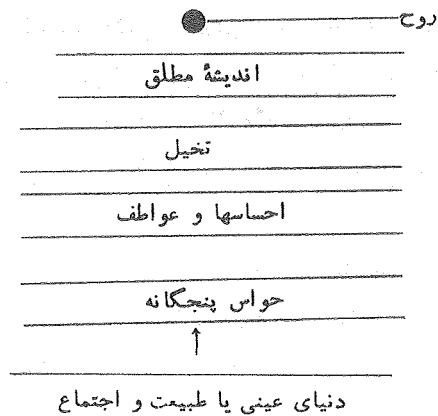 روح
اندیشهٔ مطلق
تخیل
احساسها و عواطف
حواس پنجگانه
دنیای عینی یا طبیعت و اجتماع